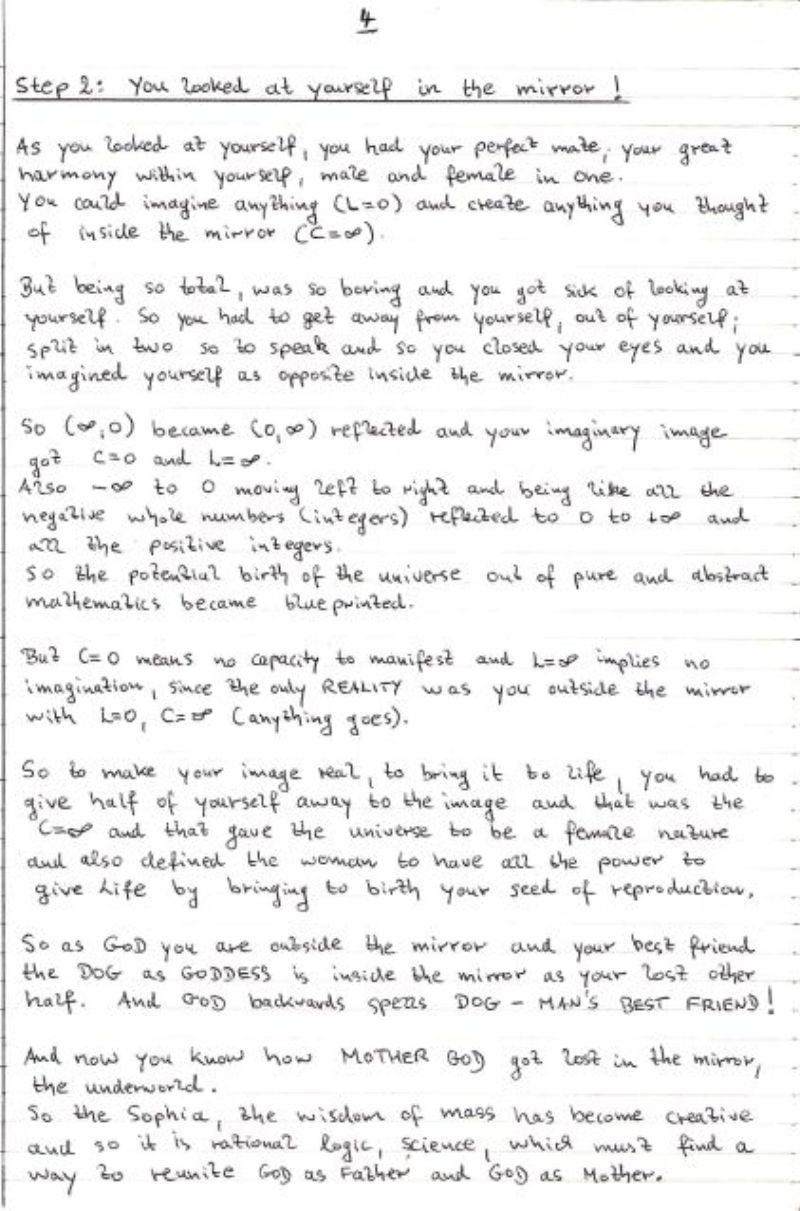 4
Step 2: You looked at yourself in the mirror!
As you looked at yourself, you had your perfect mate, your great
harmony within yourself, male and female in one.
You could imagine anything (L=0) and create anything you thought
of inside the mirror (C=∞).
But being so total, was so boring and you got sick of looking at
yourself. So you had to get away from yourself, out of yourself;
split in two so to speak and so you closed your eyes and you
imagined yourself as opposite inside the mirror.
So (∞,0) became (0,∞) reflected and your imaginary image
got C=0 and L=∞.
Also -∞ to 0 moving left to right and being like all the
negative whole numbers (integers) reflected to 0 to +∞ and
all the positive integers.
So the potential birth of the universe out of pure and abstract
mathematics became blueprinted.
But C=0 means no capacity to manifest and L=∞ implies no
imagination, since the only REALITY was you outside the mirror
with L=0, C=∞ (anything goes).
So to make your image real, to bring it to life, you had to
give half of yourself away to the image and that was the
C=∞ and that gave the universe to be a female nature
and also defined the woman to have all the power to
give Life by bringing to birth your seed of reproduction.
So as GOD you are outside the mirror and your best friend
the DOG as GODDESS is inside the mirror as your lost other
half. And GOD backwards spells DOG - MAN'S BEST FRIEND!
And now you know how MOTHER GOD got lost in the mirror,
the underworld.
So the Sophia, the wisdom of mass has become creative
and so it is rational logic, science, which must find a
way to reunite GOD as Father and GOD as Mother.